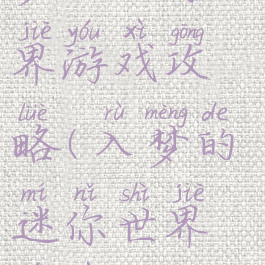 jiè yóu xì gōng
界游戏攻
lüè rù mèng de
略(入梦的
mí nǐ shì jiè
迷你世界